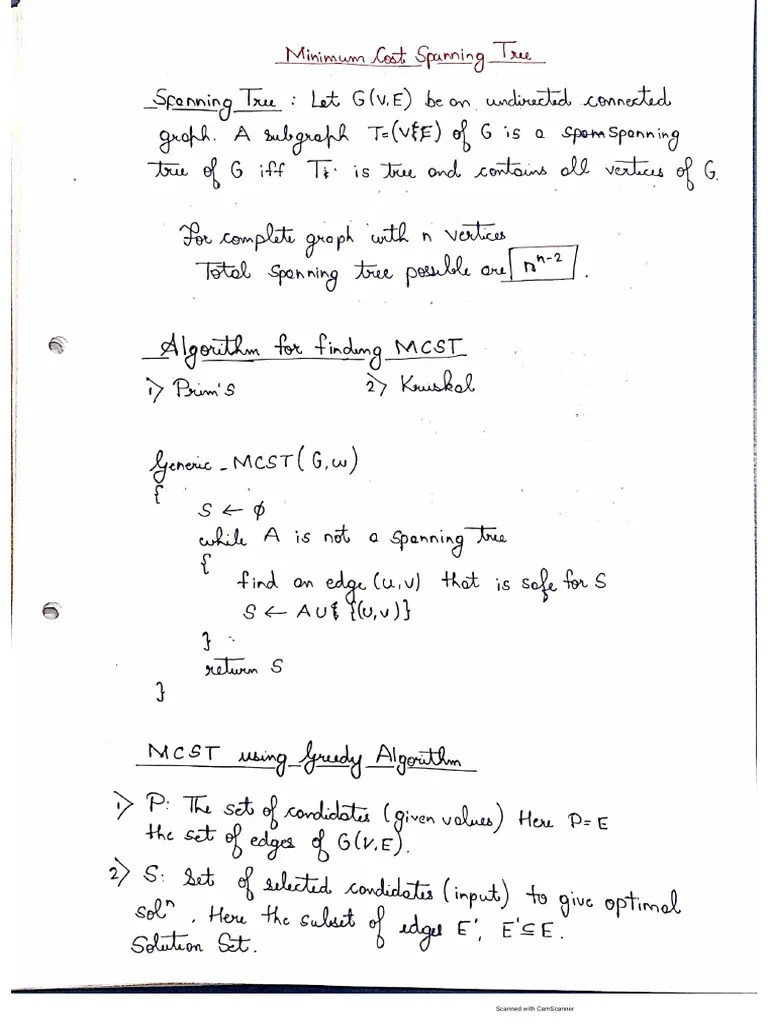 Minimum Cost Spanning Tree
Spanning Tree : Let G(V,E) be an undirected connected
graph. A subgraph T=(V&E) of G is a spanning
tree of G iff T is tree and contains all vertices of G.
For complete graph with n vertices
Total spanning tree possible are n^{n-2}.
Algorithm for finding MCST
1) Prim's 2) Kruskal
Generic_MCST(G,w)
{
S ← φ
while A is not a spanning tree
{
find an edge (u,v) that is safe for S
S ← A∪{(u,v)}
}
return S
}
MCST using Greedy Algorithm
1) P: The set of candidates (given values) Here P=E
the set of edges of G(V,E).
2) S: Set of selected candidates (input) to give optimal
solⁿ. Here the subset of edges E', E'⊆E.
Solution Set.
Scanned with CamScanner